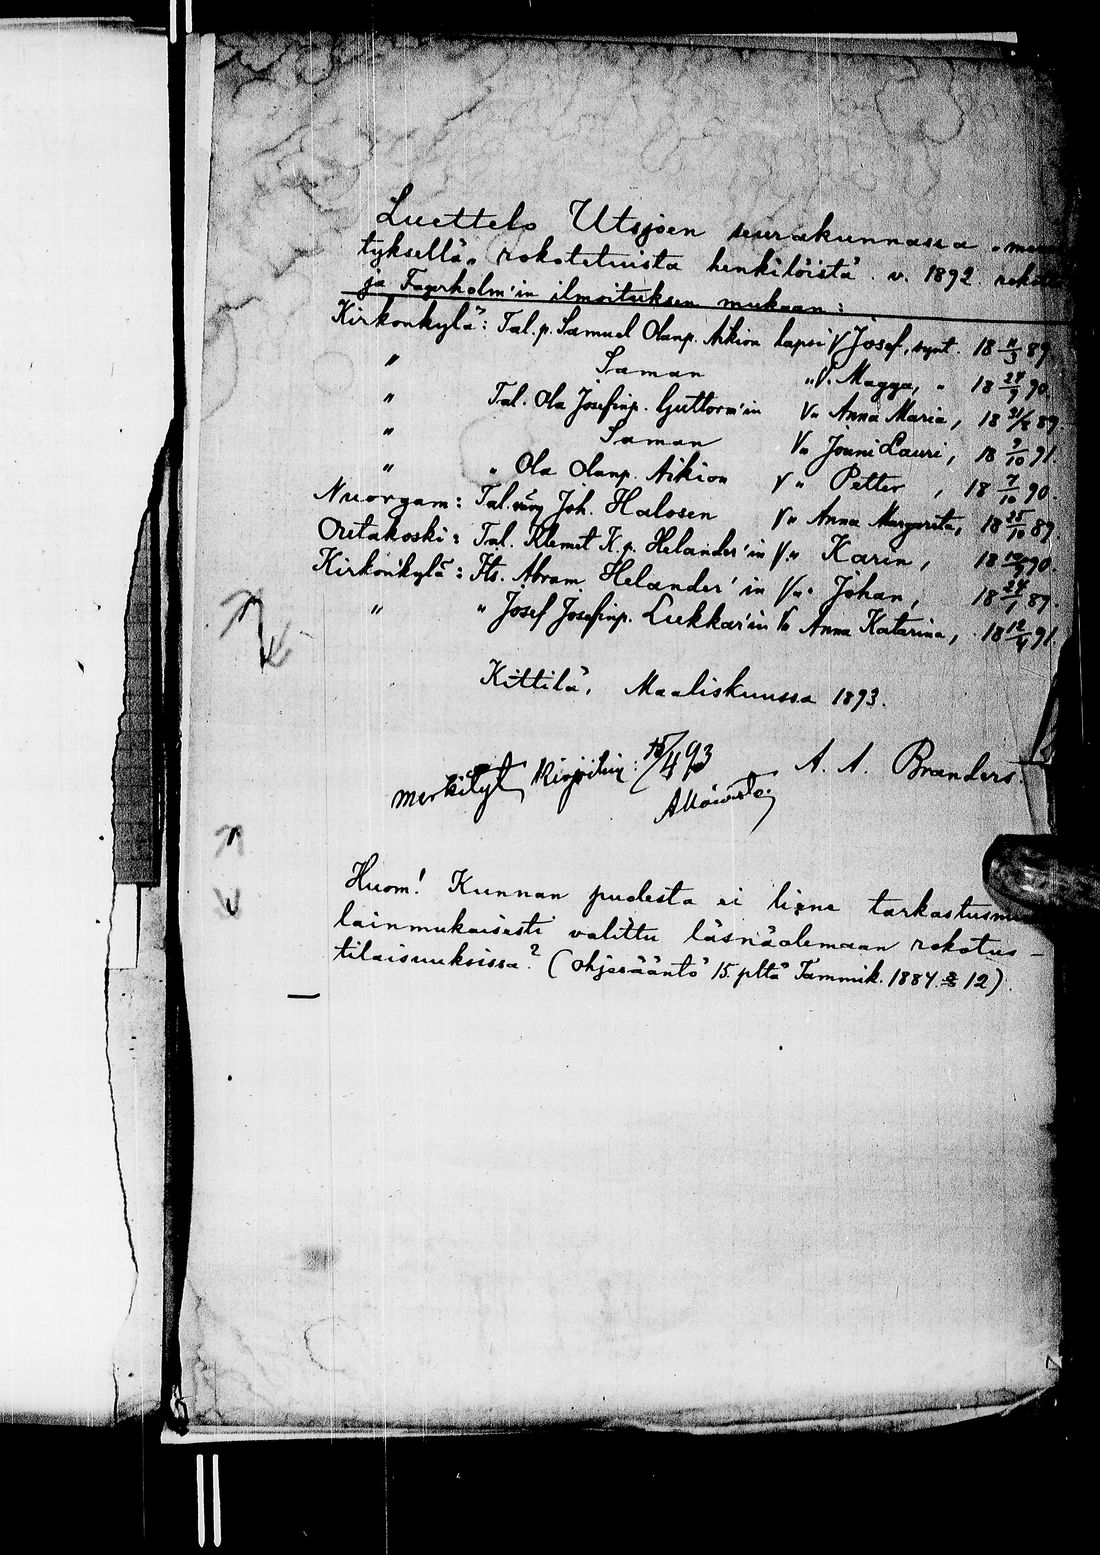 Luettelo Utsjoen seurakunnassa „
tyksellä„ rokotetuista henkilöistä v. 1892
ja Fagerholm'in ilmoituksen mukaan:
Kirkonkylä: Tal. p. Samuel Olanp. Aikion lapsi V Josef, synt. 18 11/3 89.
" Saman „ V. Magga, „ 18 24/9 90.
" Tal. Ola Josefinp. Guttorm'in V„ Anna Maria, 18 89.
" Saman V„ Jouni Lauri, 18 9/10 91.
" „ Ola Olanp. Aikion V „ Petter , 18 7/10 90.
Nuorgam: Tal. Joh. Halosen V„ Anna Margarita, 18 25/10 89.
Outakoski: Tal. Klemet K. p. Helander'in V.„ Karin, 18 90.
Kirkonkylä: Its. Abram Helander'in V„ Johan, 18 24/1 89.
" „ Josef Josefinp. Lukkar'in V„ Anna Katarina, 18 12/4 91.
Kittilä, Maaliskuussa 1893.
merkityt kirjoihin: 15/4 93
A. A. Branders.
Huom! Kunnan puolesta ei liene
lainmukaisesti valittu läsnäolemaan rokotus-
tilaisuuksissa? (Ohjesääntö 15. pltä Tammik. 1884. § 12).